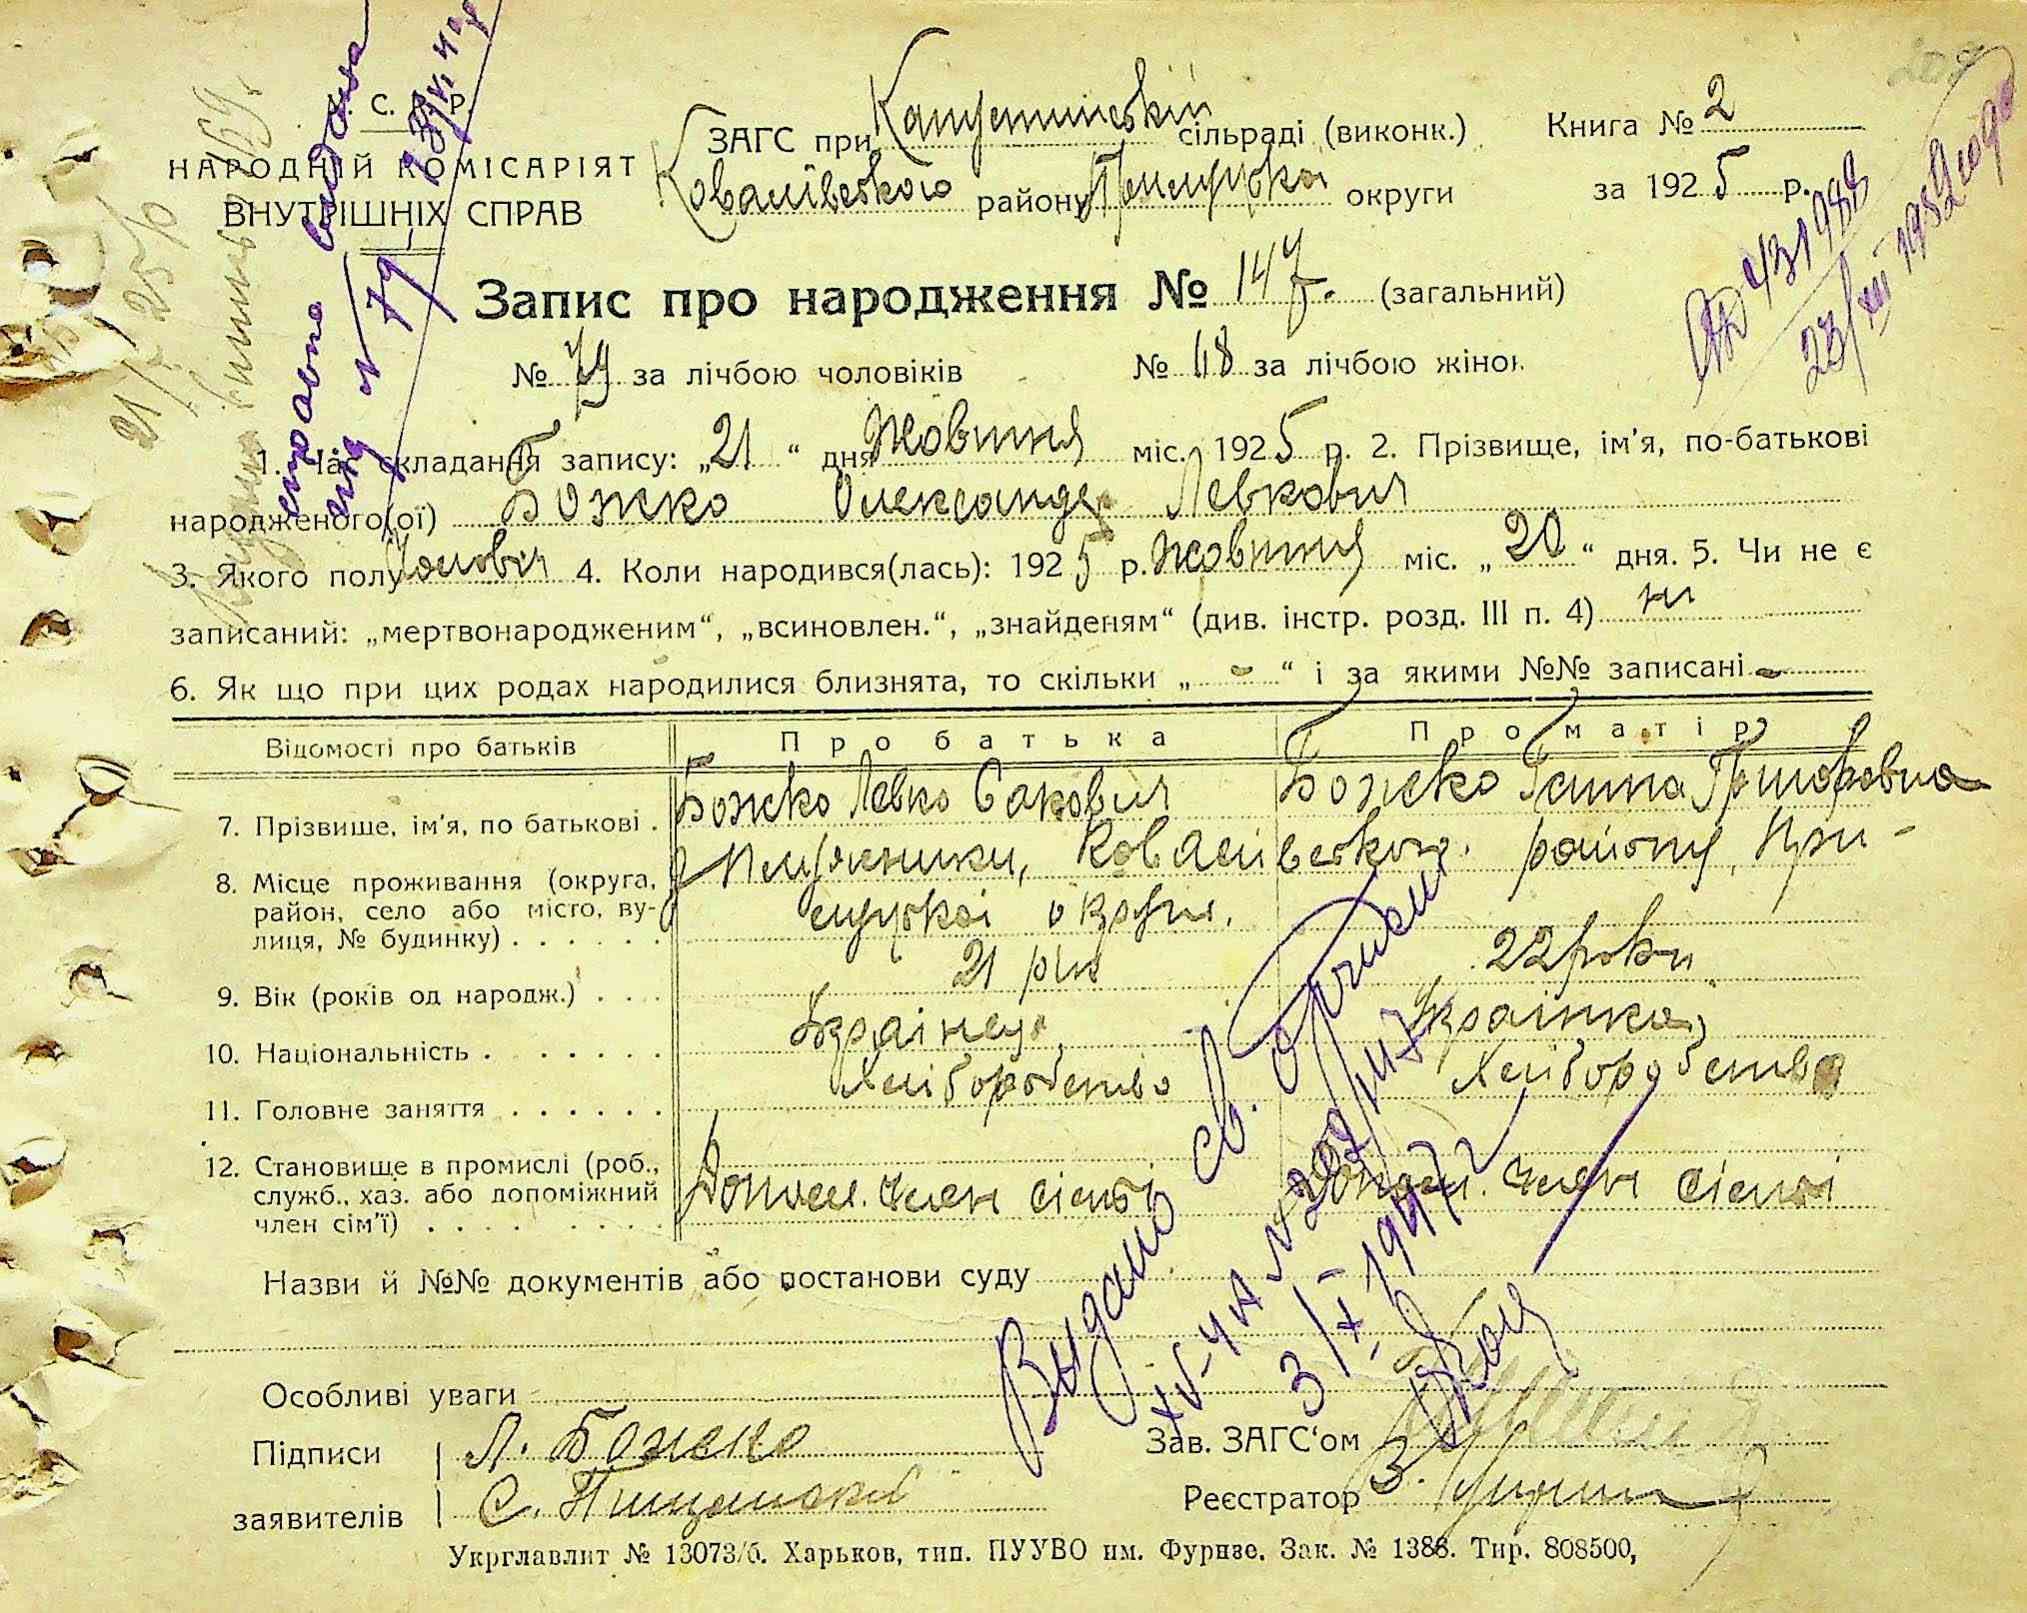 С. Р. Р.
НАРОДНІЙ КОМІСАРІЯТ
ВНУТРІШНІХ СПРАВ
ЗАГС при Капустинській сільраді (виконк.)
Ковалівського району Прилуцької округи
Книга № 2
за 1925 р.
Запис про народження № 147. (загальний)
№ 79 за лічбою чоловіків № 68 за лічбою жінок
1. Час складання запису: „21“ дня Жовтня міс. 1925 р. 2. Прізвище, ім’я, по-батькові
народженого(ої) Божко Олександер Левкович
3. Якого полу чолович 4. Коли народився(лась): 1925 р. жовтня міс. „20“ дня. 5. Чи не є
записаний: „мертвонародженим“, „всиновлен.“, „знайденям“ (див. інстр. розд. III п. 4) ні
6. Як що при цих родах народилися близнята, то скільки „ - “ і за якими №№ записані -
Відомості про батьків Про батька Про матір
7. Прізвище, ім’я, по батькові . Божко Левко Сакович Божко Ганна
8. Місце проживання (округа, район, село або місто, вулиця, № будинку) . . . . . . Ковалівського району, При-
луцької округи.
9. Вік (років од народж.) . . . 21 рік 22 роки
10. Національність . . . . . . Українець Українка
11. Головне заняття . . . . . . Хліборобство Хліборобство
12. Становище в промислі (роб., служб., хаз. або допоміжний член сім’ї) . . . . Допом. член сім'ї Допом. член сім'ї
Назви й №№ документів або постанови суду
Особливі уваги
Підписи Л. Божко
заявителів С.
Зав. ЗАГС‘ом
Реєстратор З.
Укрглавлит № 13073/б. Харьков, тип. ПУУВО им. Фурнзе. Зак. № 1386. Тир. 808500,
справка выдана
№ 79
431988
23/XII 1982 года
Выдано св. о рождении
3/X 1947 г